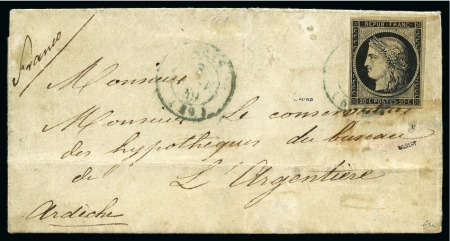 Franco
REPUB. FRANC.
20 C POSTES 20 C
Monsieur
Monsieur Le conservateur
des hypothèques du bureau
de L'Argentière
Ardèche